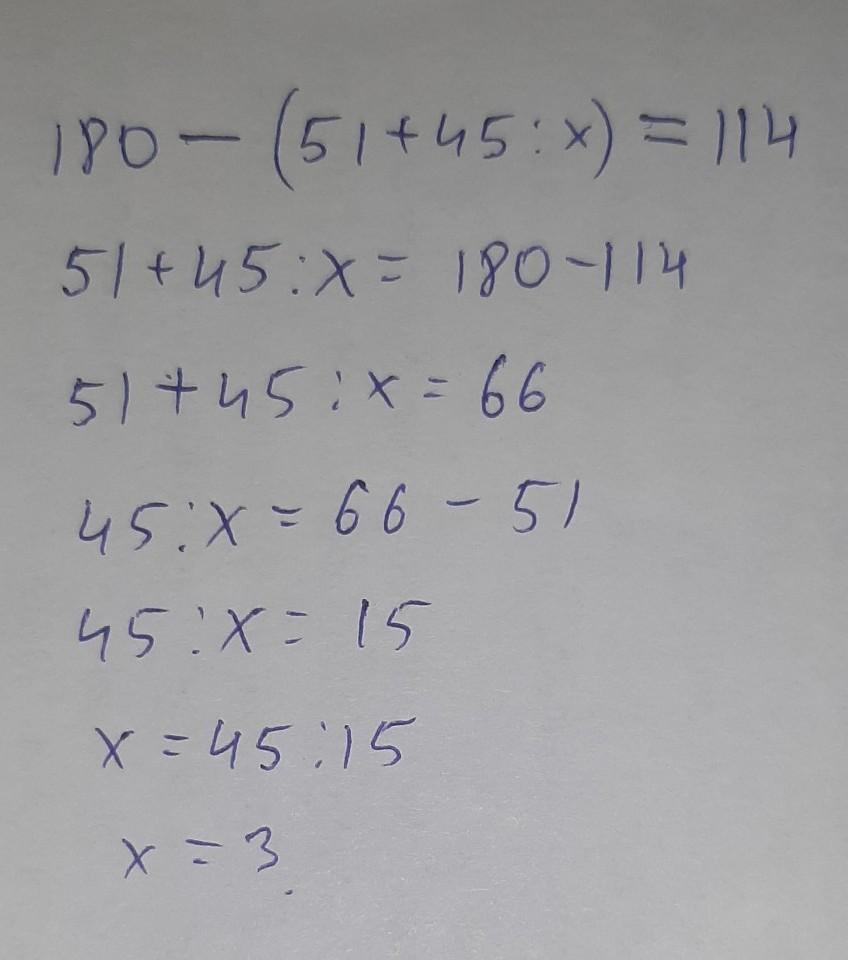 180 - (51 + 45 : x) = 114
51 + 45 : x = 180 - 114
51 + 45 : x = 66
45 : x = 66 - 51
45 : x = 15
x = 45 : 15
x = 3.